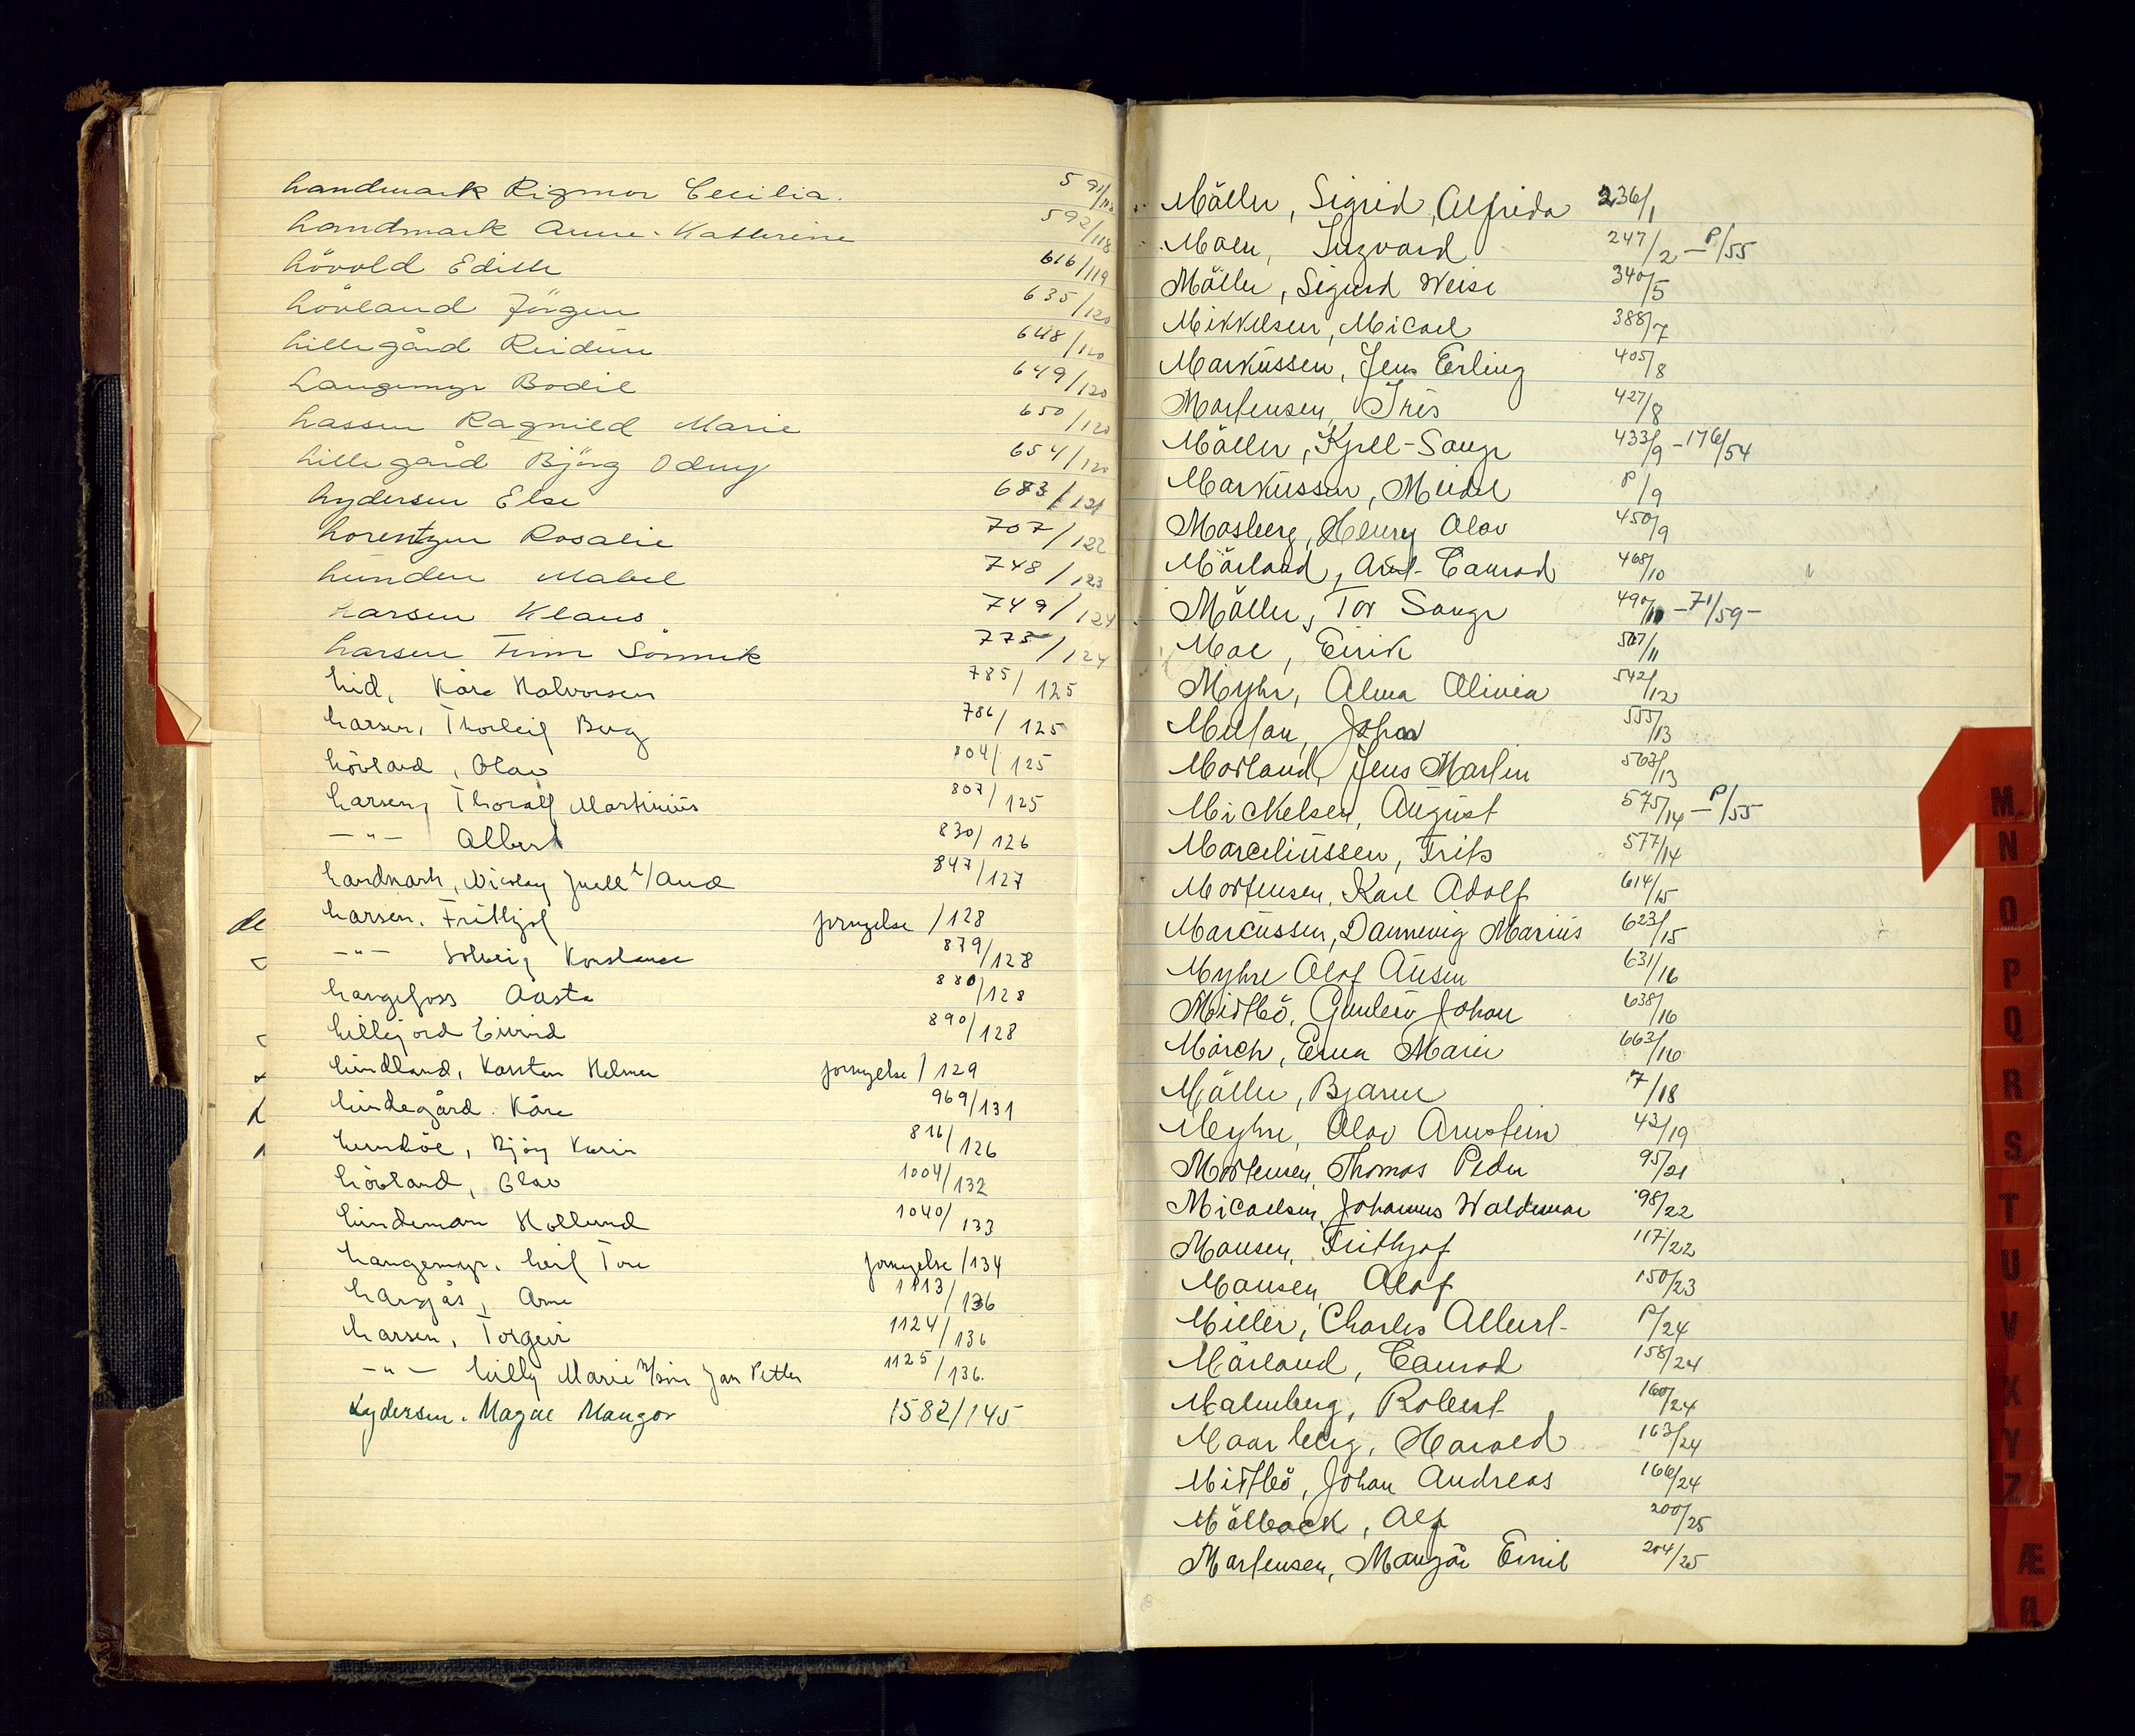 Landmark Rigmor Cecilia. 591/118
Landmark Anne-Kathrine 592/118
Lövold Edith 616/119
Lövland Jörgen 635/120
Lillegård Reidun 648/120
Langemyr Bodil 649/120
Lassen Ragnild Marie 650/120
Lillegård Björg Odny 654/120
Lydersen Else 683/121
Lorentzen Rosalie 707/122
Lunden Mabel 748/123
Larsen Klaus 749/124
Larsen Finn Sönnik 775/124
Lid, Kåre Halvorsen 785/125
Larsen, Thorleif Berg 786/125
Lövland, Olav 804/125
Larsen, Thoralf Martinius 807/125
—"— Albert 830/126
Landmark, Nicolay Juell 847/127
Larsen, Frithjof fornyelse /128
—"— Solveig Konstanse 879/128
Langefoss Aasta 880/128
Lillejord Eivind 890/128
Lindland, Karsten Helmer fornyelse /129
Lindegård. Kåre 969/131
Lundöe, Björg Karin 816/126
Lövland, Olav 1004/132
Lindeman Hollund 1040/133
Langemyr, Leif Tore fornyelse /134
Langås, Arne 1113/136
Larsen, Torgeir 1124/136
—"— Lilly Marie m/sön Jan Petter 1125/136.
Lydersen. Magne Mangor 1582/145
Möller, Sigrid Alfrida 236/1
Moen, Ingvard 247/2 — P/55
Möller, Sigurd Weise 340/5
Mikkelsen, Micael 388/7
Markussen, Jens Erling 405/8
Mortensen, Iris 427/8
Möller, Kjell-Sange 433/9 - 176/54
Markussen, Meidel P/9
Mosberg, Henry Olav 450/9
Mörland, Arnt Conrad 468/10
Möller, Tor Sange 490/10 - 71/59 -
Moe, Eirik 507/11
Myhr, Alma Olivia 542/12
Meltan, Johan 555/13
Morland, Jens Martin 563/13
Mickelsen, August 575/14 — P/55
Marceliussen, Frits 577/14
Mortensen, Karl Adolf 614/15
Marcussen, Dannevig Marius 623/15
Myhre Olaf Ausen 631/16
Midtbö, Gunlew Johan 638/16
Mörch, Erna Marie 663/16
Möller, Bjarne 7/18
Meyhre, Olav Arnstein 43/19
Mortensen, Thomas Peder 95/21
Micaelsen, Johannes Waldemar 98/22
Monsen, Frithjof 117/22
Monsen, Olaf 150/23
Miller, Charles Albert P/24
Mörland, Conrad 158/24
Malmberg, Robert 160/24
Maarberg, Harald 163/24
Midtbö, Johan Andreas 166/24
Möllback, Alf 200/25
Martensen, Mangör Emil 204/25
M.
N
O
P
Q
R
S
T
U
V
X
Y
Z
Æ
Ø